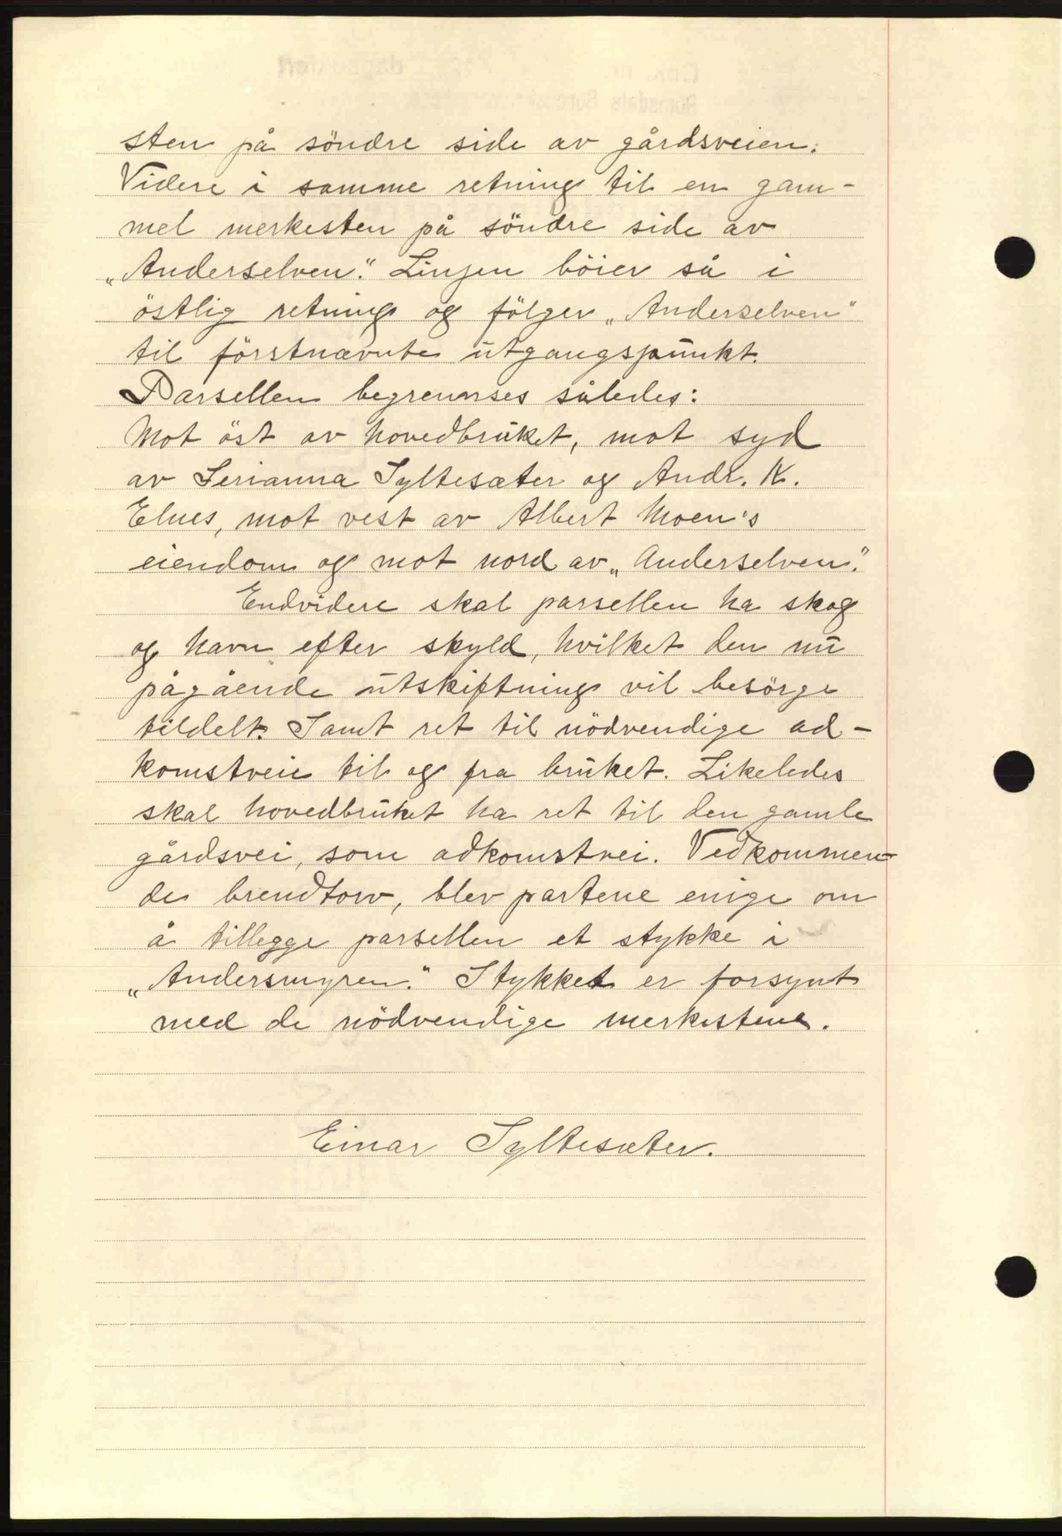 sten på söndre side av gårdsveien.
Videre i samme retning til en gam-
mel merkesten på söndre side av
„Anderselven“. Linjen böier så i
östlig retning og fölger „Anderselven“
til förstnævnte utgangspunkt.
Parsellen begrenses således:
Mot öst av hovedbruket, mot syd
av Serianna Syltesæter og Andr. K.
Elnes, mot vest av Albert Moen's
eiendom og mot nord av „Anderselven“.
Endvidere skal parsellen ha skog
og havn efter skyld, hvilket den nu
pågående utskiftning vil besörge
tildelt. Samt ret til nödvendige ad-
komstveie til og fra bruket. Likeledes
skal hovedbruket ha ret til den gamle
gårdsvei, som adkomstvei. Vedkommen-
de brendtorv, blev partene enige om
å tillegge parsellen et stykke i
„Andersmyren“. Stykket er forsynt
med de nödvendige merkestene.
Einar Syltesæter.